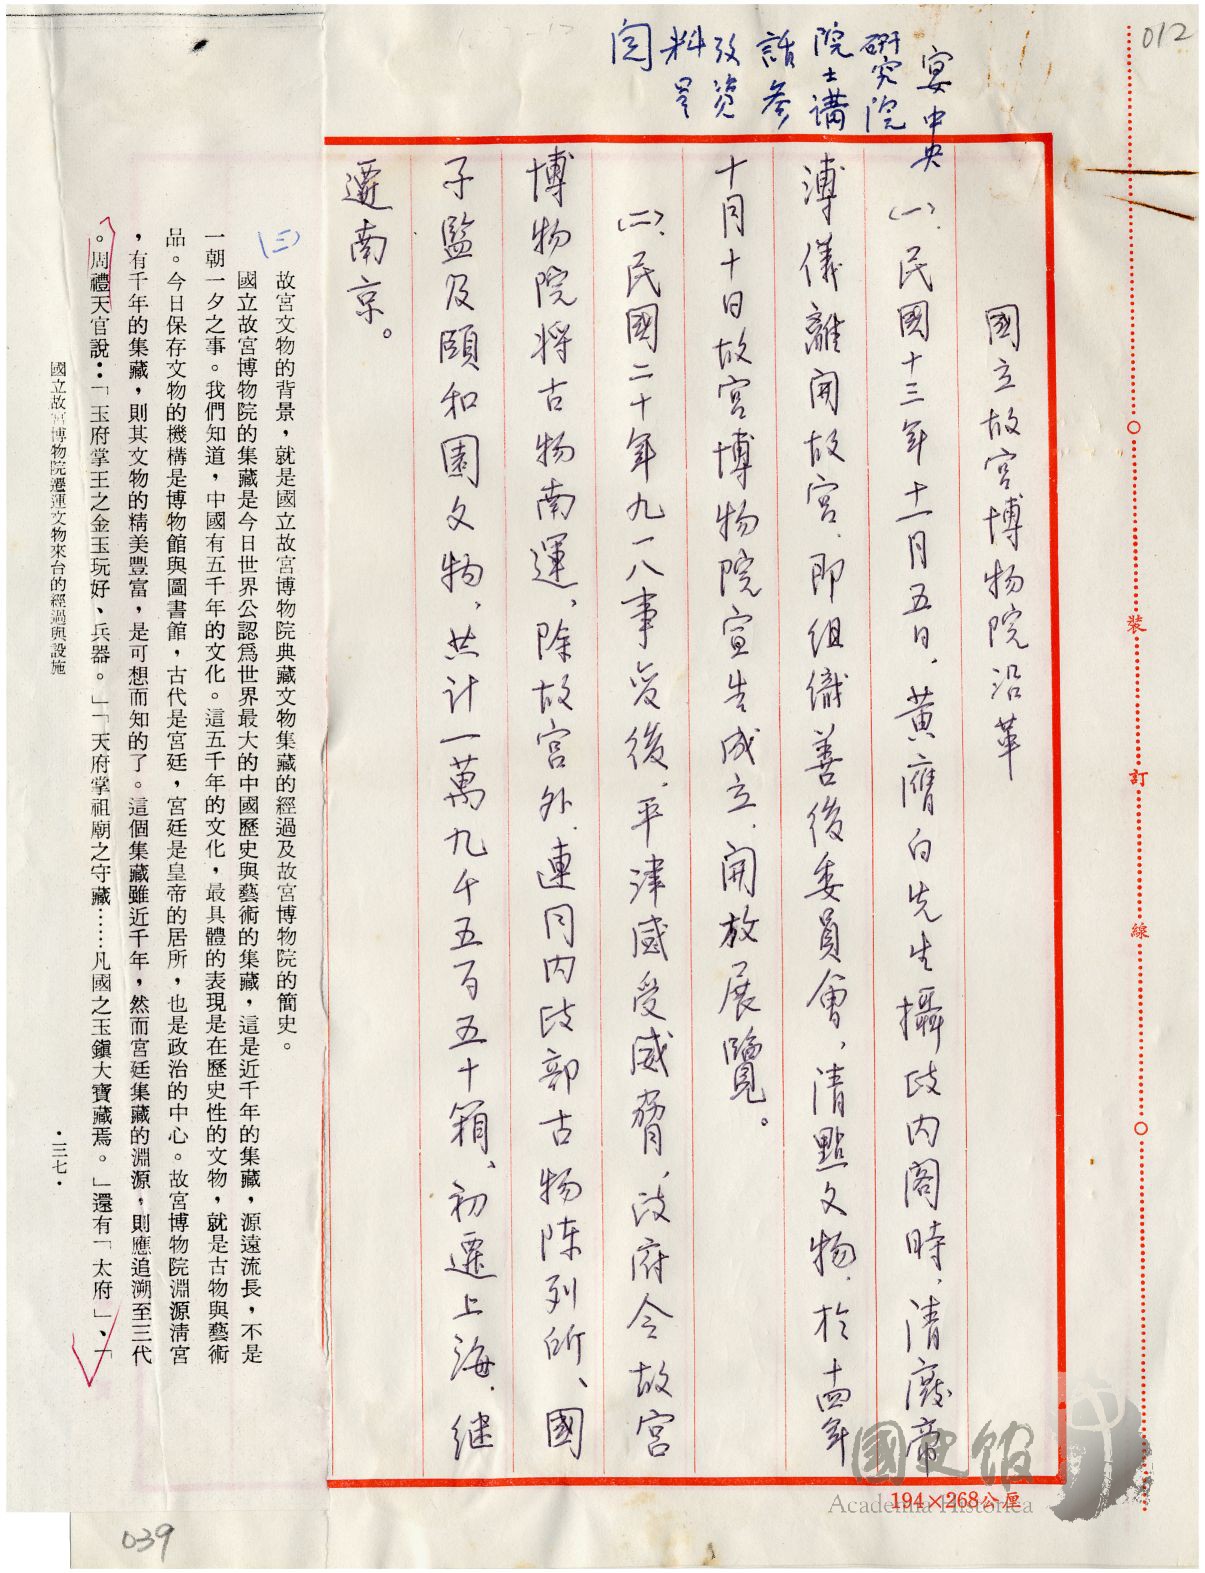 012
宴中央
研究院
院士講
話參
攷資
料呈
閱
國立故宮博物院沿革
(一)、民國十三年十一月五日、黃膺白先生攝政內閣時、清廢帝
溥儀離開故宮、即組織善後委員會、清點文物、於十四年
十月十日故宮博物院宣告成立、開放展覽。
(二)、民國二十年九一八事變後、平津感受威脅、政府令故宮
博物院將古物南運、除故宮外、連同內政部古物陳列所、國
子監及頤和園文物、共計一萬九千五百五十箱、初遷上海、繼
遷南京。
(三)
故宮文物的背景，就是國立故宮博物院典藏文物集藏的經過及故宮博物院的簡史。
國立故宮博物院的集藏是今日世界公認爲世界最大的中國歷史與藝術的集藏，這是近千年的集藏，源遠流長，不是
一朝一夕之事。我們知道，中國有五千年的文化。這五千年的文化，最具體的表現是在歷史性的文物，就是古物與藝術
品。今日保存文物的機構是博物館與圖書館，古代是宮廷，宮廷是皇帝的居所，也是政治的中心。故宮博物院淵源淸宮
，有千年的集藏，則其文物的精美豐富，是可想而知的了。這個集藏雖近千年，然而宮廷集藏的淵源，則應追溯至三代
。周禮天官說：「玉府掌王之金玉玩好、兵器。」「天府掌祖廟之守藏……凡國之玉鎭大寶藏焉。」還有「太府」、「
國立故宮博物院遷運文物來台的經過與設施
・三七・
裝
訂
線
194×268公厘
國史館
Academia Historica
039